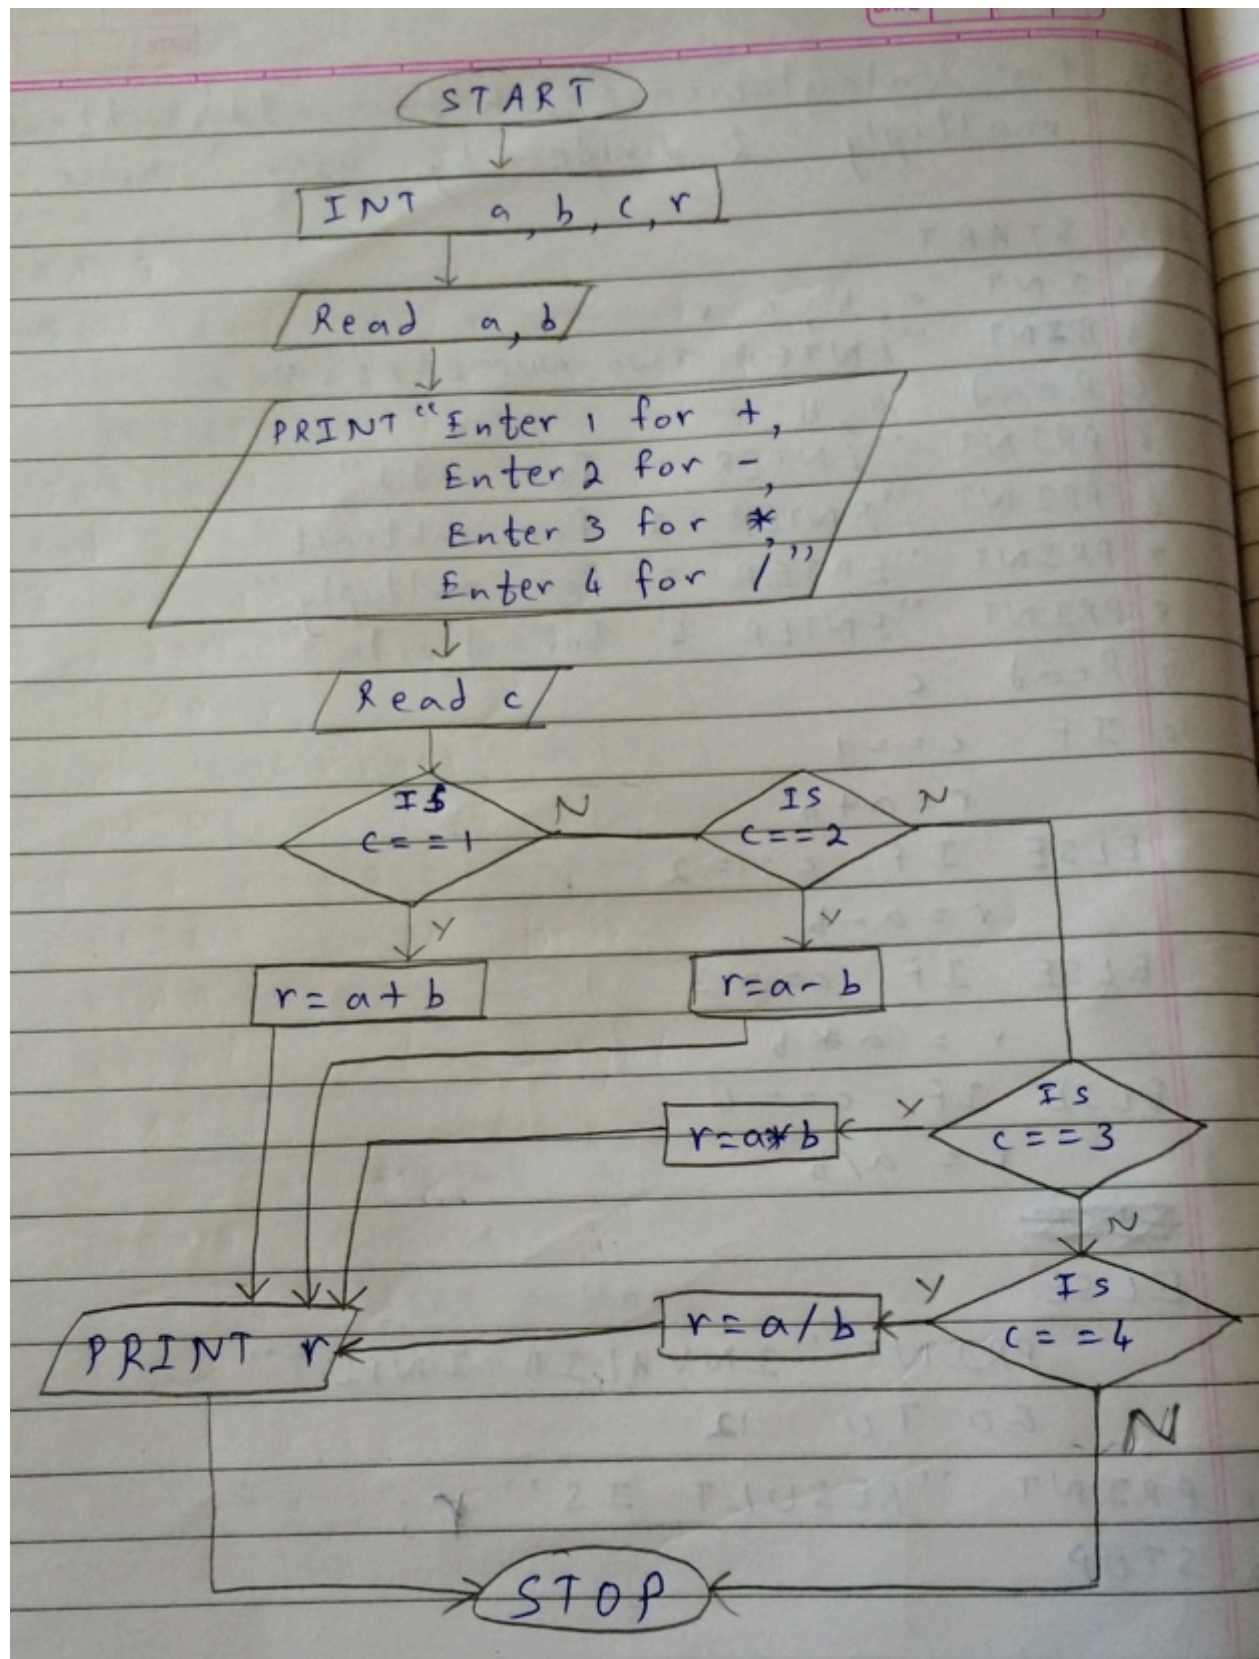 START
INT a, b, c, r
Read a, b
PRINT “Enter 1 for +,
Enter 2 for -,
Enter 3 for *,
Enter 4 for /”
Read c
Is
c==1
N
IS
c==2
N
Y
Y
r=a+b
r=a-b
Is
c==3
Y
r=a*b
N
Is
c==4
Y
r=a/b
PRINT r
N
STOP